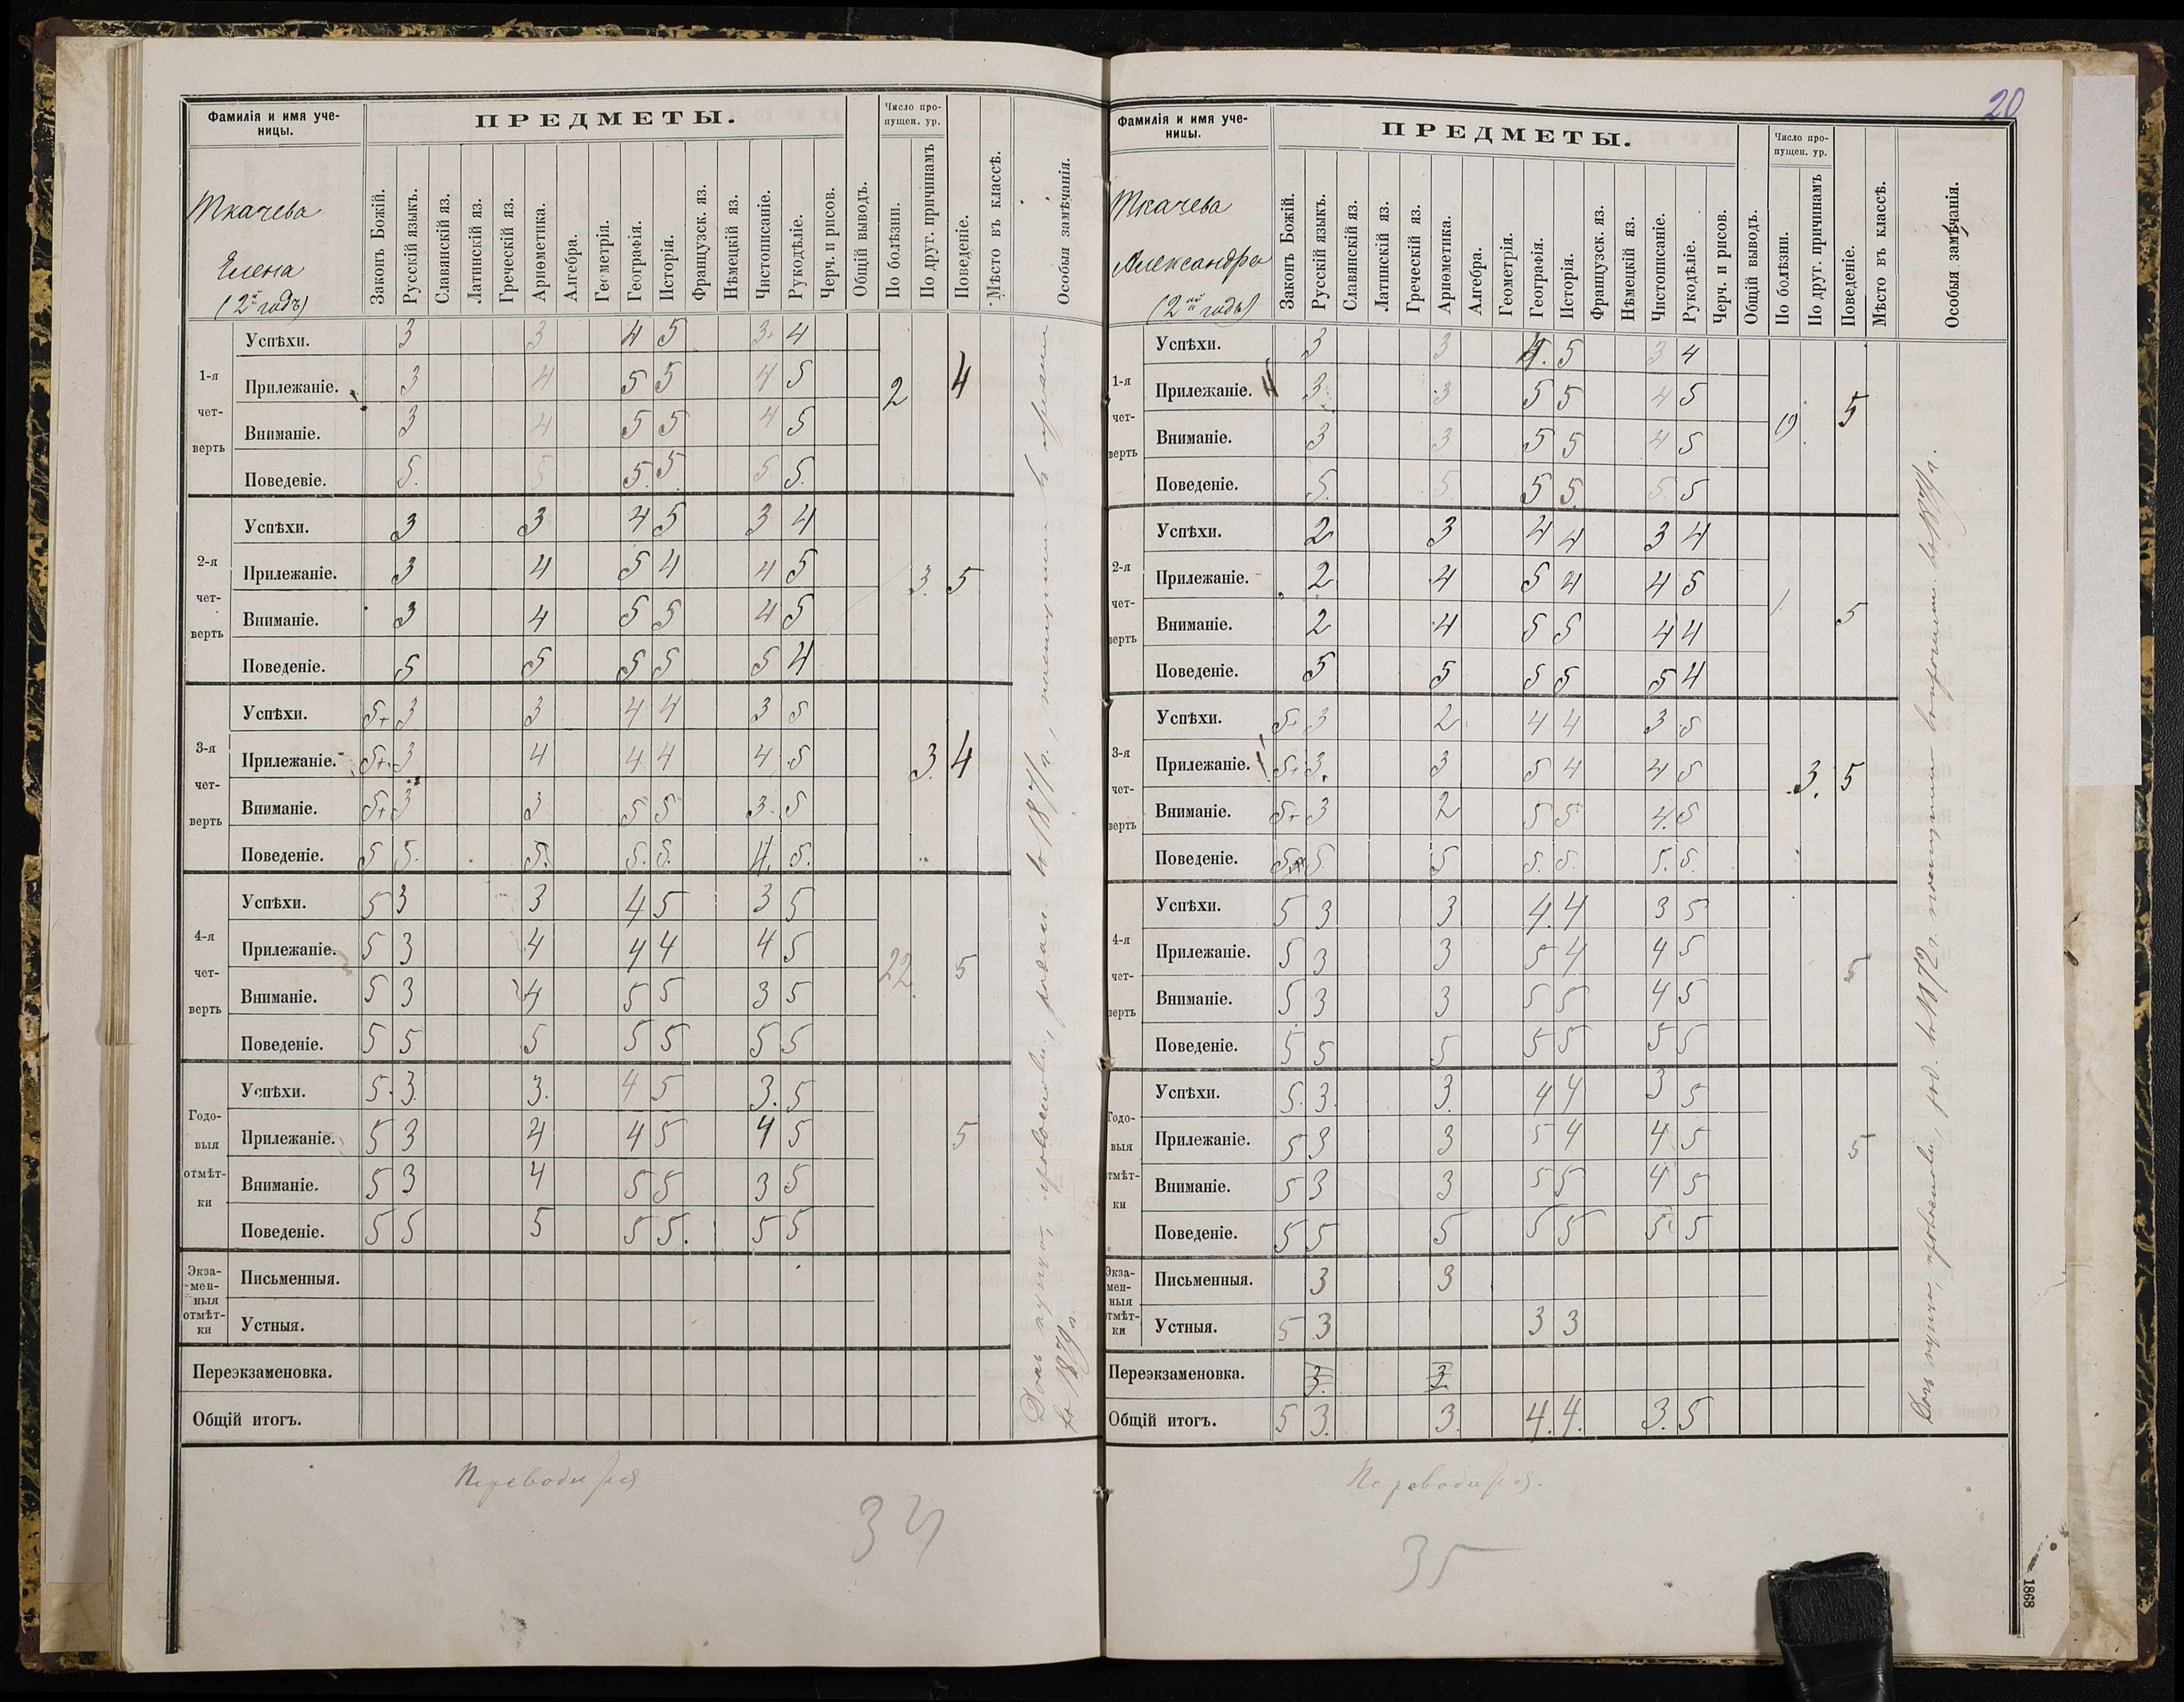 Фамилія и имя уче-
ницы.
ПРЕДМЕТЫ.
Число про-
пущен. ур.
Ткачева
Елена
(2й годъ)
Законъ Божій.
Русскій языкъ.
Славянскій яз.
Латинскій яз.
Греческій яз.
Ариѳметика.
Алгебра.
Геометрія.
Географія.
Исторія.
Французск. яз.
Нѣмецкій яз.
Чистописаніе.
Рукодѣліе.
Черч. и рисов.
Общій выводъ.
По болѣзни.
По друг. причинамъ
Поведеніе.
Мѣсто въ классѣ.
Особыя замѣчанія.
1-я
чет-
верть
Успѣхи. 3 3 4 5 3 4
Прилежаніе. 3 4 5 5 4 5 2 4
Вниманіе. 3 4 5 5 4 5
Поведевіе. 5. 5 5. 5. 5. 5.
2-я
чет-
верть
Успѣхи. 3 3 4 5 3 4
Прилежаніе. 3 4 5 4 4 5 3. 5
Вниманіе. 3 4 5 5 4 5
Поведеніе. 5 5 5 5 5 4
3-я
чет-
верть
Успѣхи. 5+ 3 3 4 4 3 5
Прилежаніе. 5+ 3 4 4 4 4 5 3. 4
Вниманіе. 5+ 3 3 5 5 3 5
Поведеніе. 5 5. 5. 5. 5. 4. 5.
4-я
чет-
верть
Успѣхи. 5 3 3 4 5 3 5
Прилежаніе. 5 3 4 4 4 4 5 22. 5
Вниманіе. 5 3 4 5 5 3 5
Поведеніе. 5 5 5 5 5 5 5
Годо-
выя
отмѣт-
ки
Успѣхи. 5. 3. 3. 4 5 3. 5
Прилежаніе. 5 3 4 4 5 4 5 5
Вниманіе. 5 3 4 5 5 3 5
Поведеніе. 5 5 5 5 5. 5 5
Экза-
мен-
ныя
отмѣт-
ки
Письменныя.
Устныя.
Переэкзаменовка.
Общій итогъ.
Дочь купца, православн., родил. въ 187 г., поступила въ прогимн
въ 1879 г.
Переводится
34
20
Фамилія и имя уче-
ницы.
ПРЕДМЕТЫ.
Число про-
пущен. ур.
Ткачева
Александра
(2ой годъ)
Законъ Божій.
Русскій языкъ.
Славянскій яз.
Латинскій яз.
Греческій яз.
Ариѳметика.
Алгебра.
Геометрія.
Географія.
Исторія.
Французск. яз.
Нѣмецкій яз.
Чистописаніе.
Рукодѣліе.
Черч. и рисов.
Общій выводъ.
По болѣзни.
По друг. причинамъ
Поведеніе.
Мѣсто въ классѣ.
Особыя замѣчанія.
1-я
чет-
верть
Успѣхи. 3 3 4. 5 3 4
Прилежаніе. 3 3 5 5 4 5 19. 5
Вниманіе. 3 3 5 5 4 5
Поведеніе. 5. 5 5 5. 5. 5
2-я
чет-
верть
Успѣхи. 2 3 4 4 3 4
Прилежаніе. 2 4 5 4 4 5 1. 5
Вниманіе. 2 4 5 5 4 4
Поведеніе. 5 5 5 5 5 4
3-я
чет-
верть
Успѣхи. 5+ 3 2 4 4 3 5
Прилежаніе. 5+ 3. 3 5 4 4 5 3. 5
Вниманіе. 5+ 3 2 5 5 4. 5
Поведеніе. 5 5 5. 5. 5. 5.
4-я
чет-
верть
Успѣхи. 5 3 3 4. 4 3 5
Прилежаніе. 5 3 3 5 4 4 5 5
Вниманіе. 5 3 3 5 5 4 5
Поведеніе. 5 5 5 5 5 5 5
Годо-
выя
отмѣт-
ки
Успѣхи. 5. 3. 3. 4 4 3 5
Прилежаніе. 5 3 3 5 4 4 5 5
Вниманіе. 5 3 3 5 5 4 5
Поведеніе. 5 5 5 5 5 5 5
Экза-
мен-
ныя
отмѣт-
ки
Письменныя. 3 3
Устныя. 5 3 3 3
Переэкзаменовка. 3. 3.
Общій итогъ. 5 3. 3. 4. 4. 3. 5
Дочь купца, православн., род. въ 1872 г. поступила въ прогимн. въ г.
Переводится.
35
1868